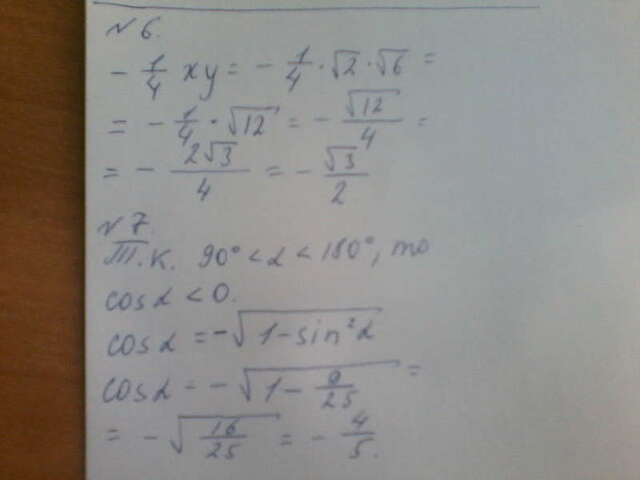 №6.
- 1/4 xy = - 1/4 · √2 · √6 =
= - 1/4 · √12 = - √12/4 =
= - 2√3/4 = - √3/2
№7.
Т.к. 90° < α < 180°, то
cos α < 0.
cos α = -√(1-sin²α)
cos α = -√(1 - 9/25) =
= -√(16/25) = - 4/5.